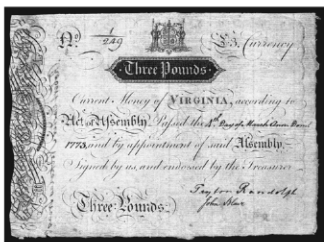 No. 1/249 £3. Currency
Three Pounds.
Current Money of VIRGINIA, according to
Act of Assembly Passed the 4th Day of March Anno Dom.
1773, and by appointment of said Assembly.
Signed by us, and endorsed by the Treasurer
Peyton Randolph
Three Pounds. John Blair